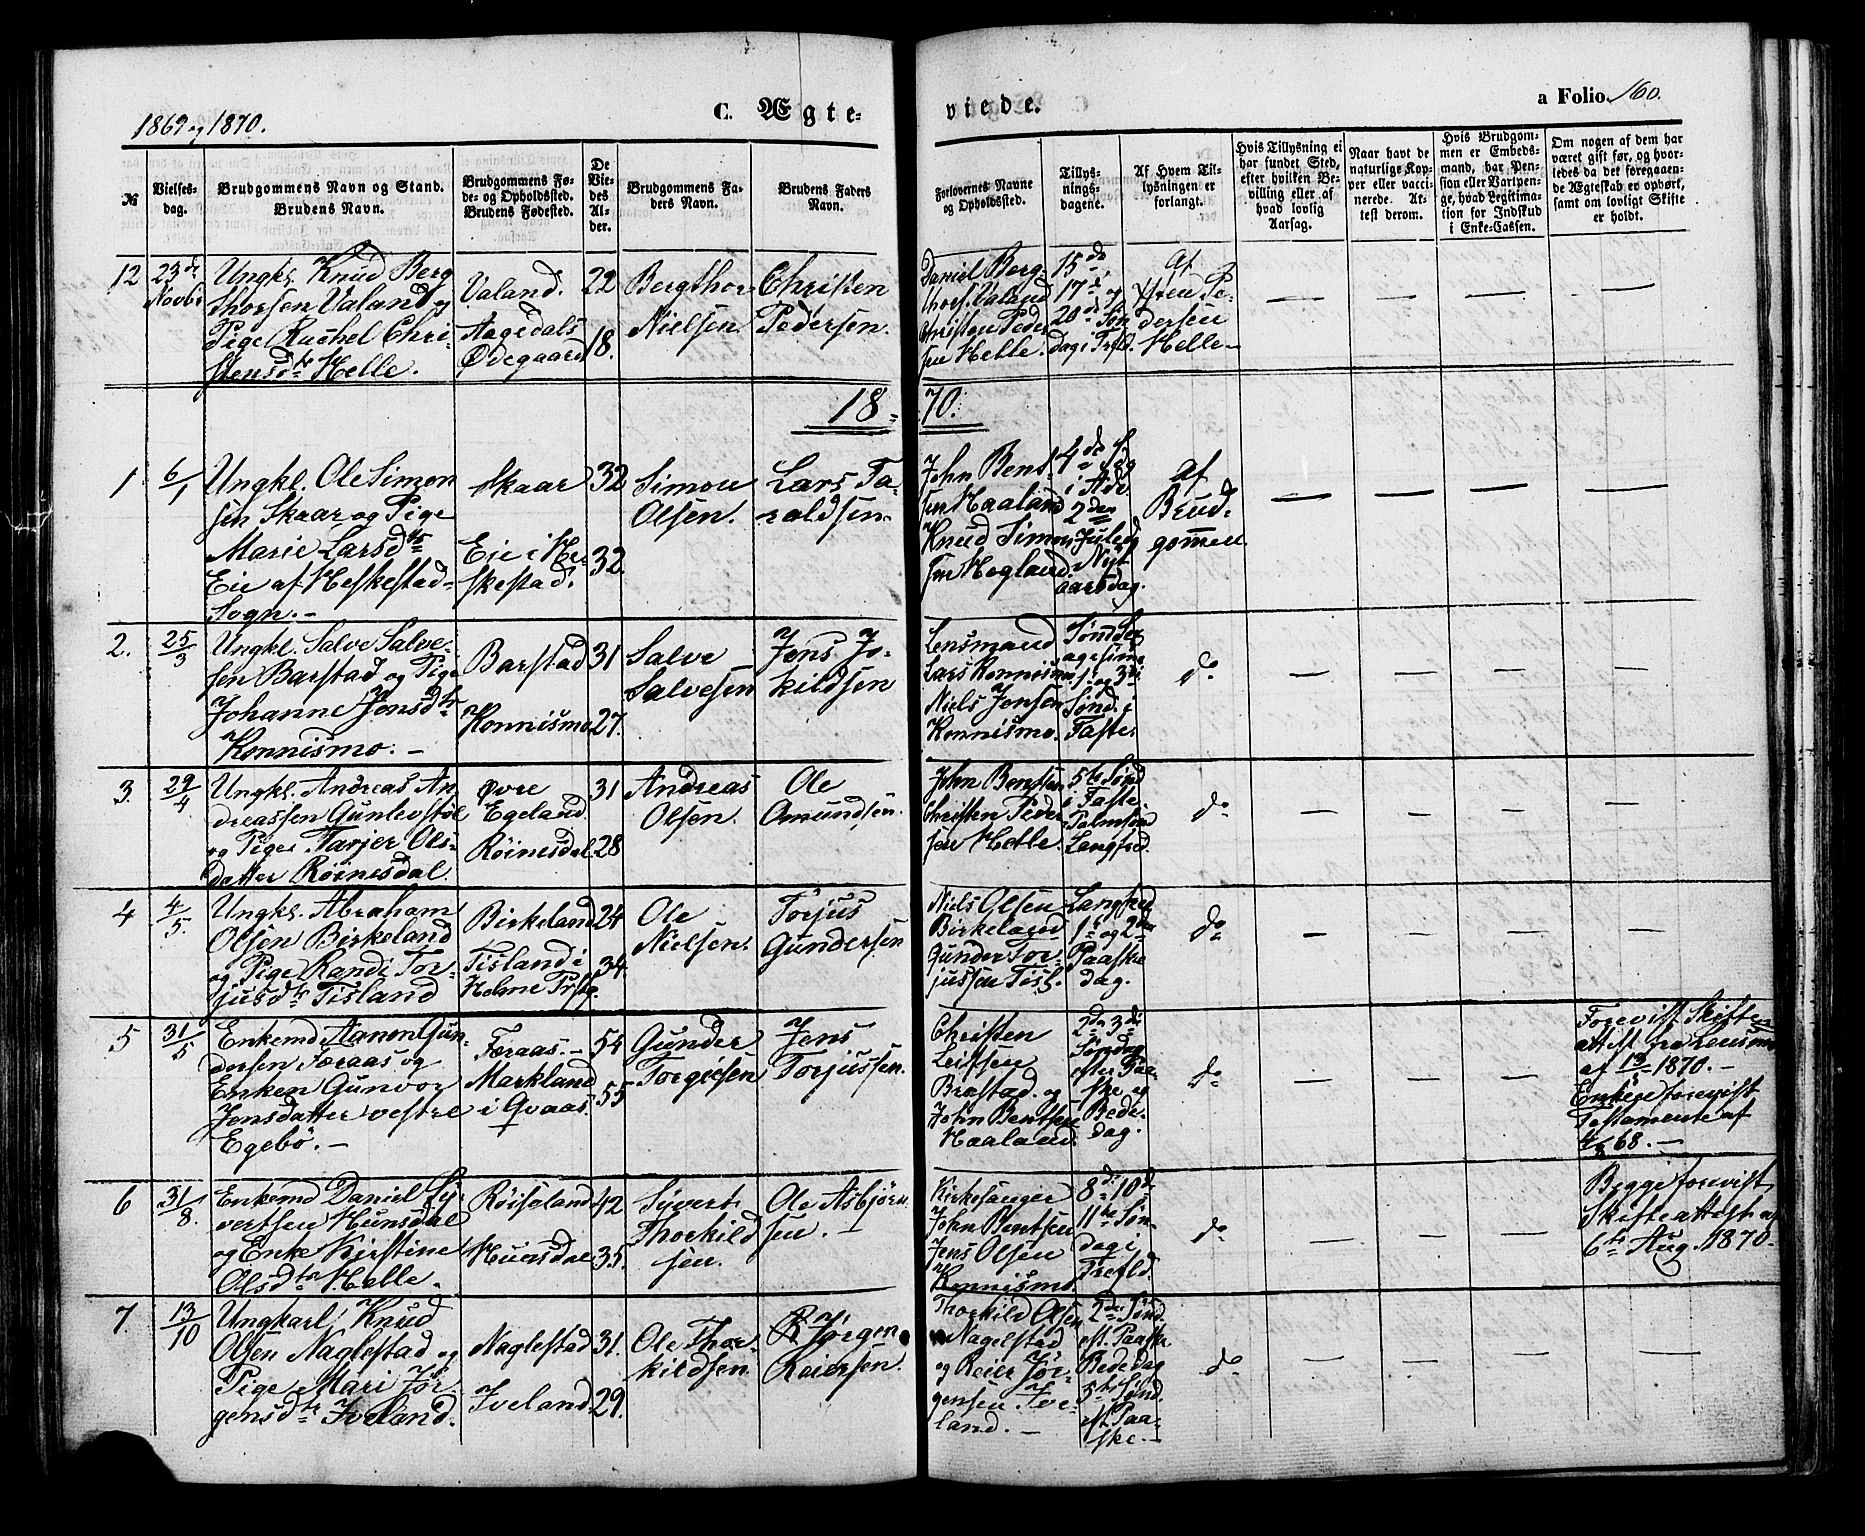 1869 og 1870.
C. Ægte-
viede.
a Folio. 160.
№
Vielses-
dag.
Brudgommens Navn og Stand.
Brudens Navn.
Brudgommens Fø-
de- og Opholdssted.
Brudens Fødested.
De
Vie-
des
Al-
der.
Brudgommens Fa-
ders Navn.
Brudens Faders
Navn.
Forlovernes Navne
og Opholdssted.
Tillys-
nings-
dagene.
Af Hvem Til-
lysningen er
forlangt.
Hvis Tillysning ei
har fundet Sted,
efter hvilken Be-
villing eller af
hvad lovlig
Aarsag.
Naar havt de
naturlige Kop-
per eller vacci-
nerede. At-
test derom.
Hvis Brudgom-
men er Embeds-
mand, har Pen-
sion eller Vartpen-
ge, hvad Legitima-
tion for Indskud
i Enke-Cassen.
Om nogen af dem har
været gift før, og hvor-
ledes da det foregaaen-
de Ægteskab er ophørt,
samt om lovligt Skifte
er holdt.
12
23de
Novbr
Ungkl. Knud Berg
thorsen Valand og
Pige Rachel Chri-
stensdtr Helle.
Valand.
Aagedals
Ødegaard
22
18.
Bergthor
Nielsen
Christen
Pedersen.
Daniel Berg-
thors. Valand
Christen Peder
sen Helle.
15de,
17de og
20de Søn
dag i Trefld.
Af
Pe-
dersen
Helle
18-
70.
1
6/1
Ungkl. Ole Simon
sen Skaar og Pige
Marie Larsdtr
Eie af Heskestad-
Sogn.-
Skaar
Eie i He-
skestad.
32
32.
Simon
Olsen.
Lars Ta-
raldsen.
John Bent
sen Haaland
Knud Simon
sen Hogland.
4de S.
i Adv.
2den
Juledg
Nyt
aarsdag.
Af
Brud-
gommen
2.
25/3
Ungkl. Salve Salve-
sen Barstad og Pige
Johanne Jensdtr
Konnismo.-
Barstad
Konnismo
31
27.
Salve
Salvesen
Jens Jo-
kildsen
Lensmand
Lars Konnismo
Niels Jensen
Konnismo.
Sønd. Sex
agesima
1. og 3die
Sønd. i
Faste.
do
3.
29/4
Ungkl. Andreas An
dreassen Gunlevstøl
og Pige Tarjer Ols-
datter Röinesdal.
Øvre
Egeland.
Röinesdal.
31
28
Andreas
Olsen.
Ole
Omundsen.
John Bentsen
Christen Peder
sen Helle.
5te Sønd
i Faste.
Palmsønd
Langfred.
do
4
4/5
Ungkl. Abraham
Olsen Birkeland
og Pige Randi Tor-
jusdtr Tisland
Birkeland
Tisland i
Holme Prstg.
24
34.
Ole
Nielsen.
Torjus
Gundersen.
Niels Olsen
Birkeland
Gunder Tor-
jussen Tisl.
Langfred
1ste og 2den
Paaske
dag.
do
5
31/5
Enkemd Aanon Gun-
dersen Færaas og
Enken Gunvor
Jensdatter vestre
Egebö.-
Færaas.-
Markland
i Qvaas
54
55
Gunder
Torgiesen
Jens
Torjussen.
Christen
Leifsen
Brastad. og
John Bentsen
Haaland.
2den 3die
Söndag
efter Paa-
ske og
Bede-
dag.
do
Forevist Skifte-
attest fra Lensmd
af 13/ 1870.-
Enken forevist
Testamente af
4/8 68.-
6
31/8.
Enkemd Daniel Sy-
vertsen Hunsdal
og Enke Kirstine
Olsdtr Helle.
Röiseland
Hunsdal
42
35.
Syvert
Thorkild
sen.
Ole Asbjörn
sen.-
Kirkesanger
John Bentsen
Jens Olsen
Konnismo.
8de 10de
11te Søn-
dag i
Trefld.
do
Begge forevist
Skifteattest af
6te Aug. 1870.
7.
13/10
Ungkarl Knud
Olsen Naglestad og
Pige Mari Jör
gensdtr Iveland.
Naglestad
Iveland.
31.
29.
Ole Thor-
kildsen
Jörgen
Reiersen.
Thorkild Olsen
Nagelstad
og Reier Jør-
gensen Ive-
land.-
2den Sønd.
eft. Paaske
Bededag
5te Sønd.
eft. Paa-
ske.-
do